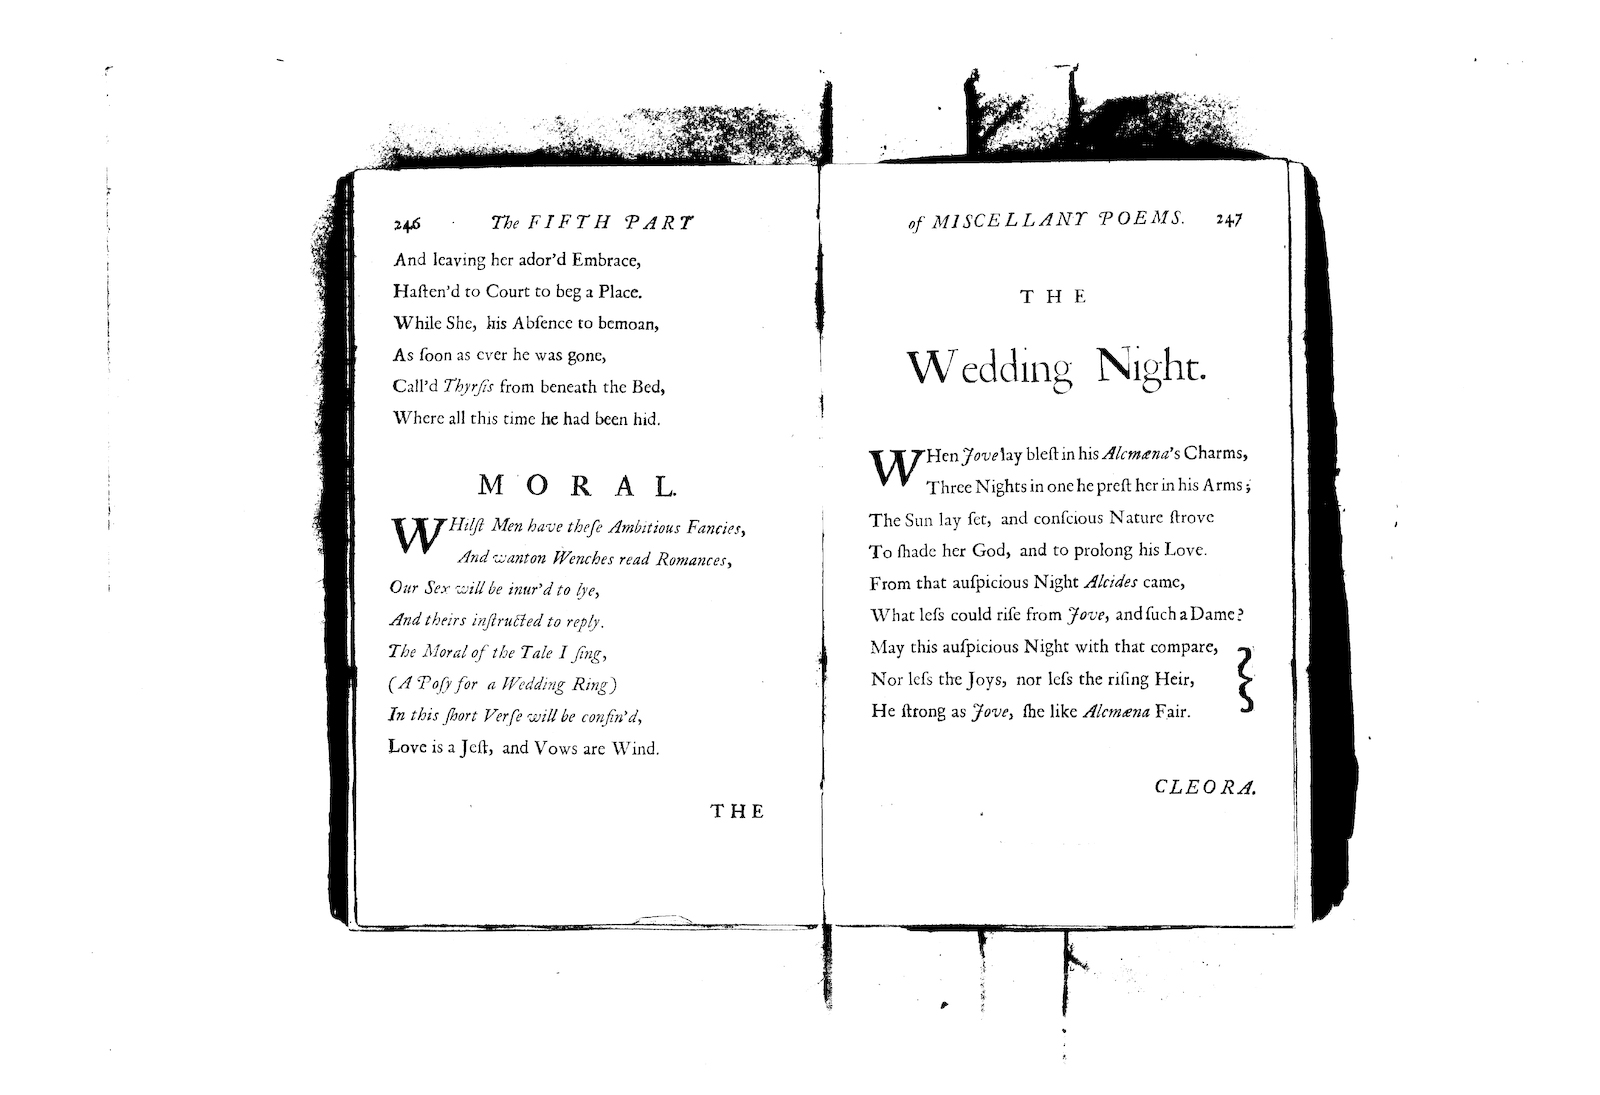 246 The FIFTH PART
And leaving her ador'd Embrace,
Haſten'd to Court to beg a Place.
While She, his Abſence to bemoan,
As ſoon as ever he was gone,
Call'd Thyrſis from beneath the Bed,
Where all this time he had been hid.
MORAL.
WHilſt Men have theſe Ambitious Fancies,
And wanton Wenches read Romances,
Our Sex will be inur'd to lye,
And theirs inſtructed to reply.
The Moral of the Tale I ſing,
(A Poſy for a Wedding Ring)
In this ſhort Verſe will be confin'd,
Love is a Jeſt, and Vows are Wind.
THE
of MISCELLANY POEMS. 247
THE
Wedding Night.
WHen Jove lay bleſt in his Alcmæna's Charms,
Three Nights in one he preſt her in his Arms;
The Sun lay ſet, and conſcious Nature ſtrove
To ſhade her God, and to prolong his Love.
From that auſpicious Night Alcides came,
What leſs could riſe from Jove, and ſuch a Dame?
May this auſpicious Night with that compare,
Nor leſs the Joys, nor leſs the riſing Heir,
He ſtrong as Jove, ſhe like Alcmæna Fair.
CLEORA.